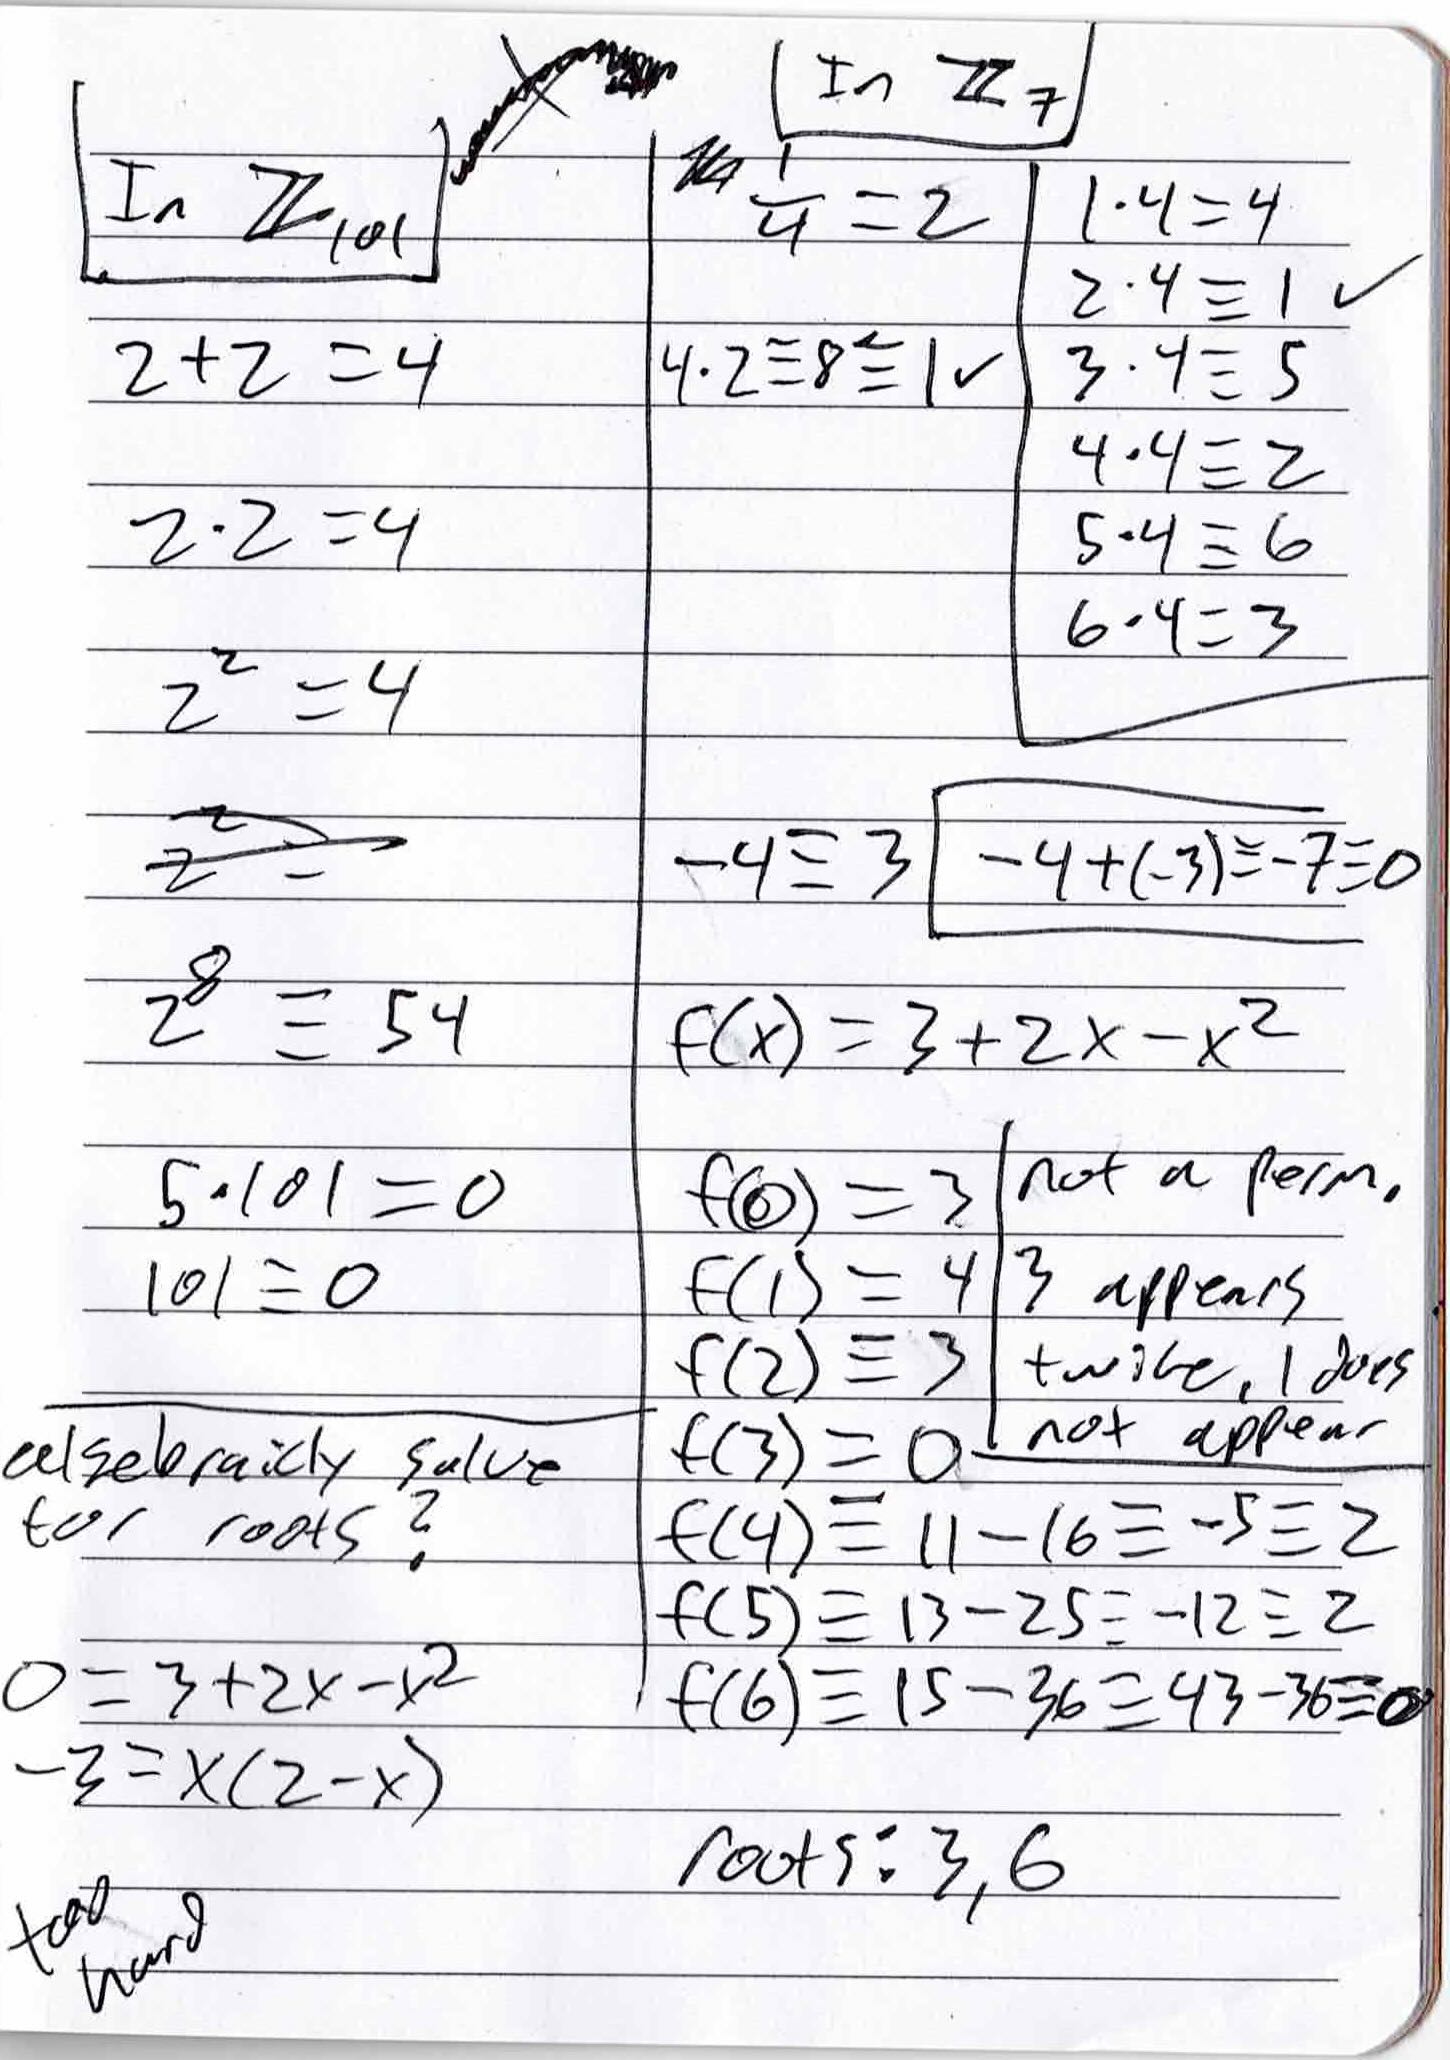 In ℤ₁₀₁
2+2=4
2·2=4
2²=4
2² =
2⁸ ≡ 54
5·101=0
101≡0
algebraicly solve
for roots?
0=3+2x-x²
-3=x(2-x)
too
hard
In ℤ₇
1/4=2
4·2≡8≡1✓
1·4=4
2·4≡1 ✓
3·4≡5
4·4≡2
5·4≡6
6·4=3
-4≡3
-4+(-3)≡-7≡0
f(x)=3+2x-x²
f(0)=3
f(1)=4
f(2)≡3
f(3)=0
not a perm.
3 appears
twice, 1 does
not appear
f(4)≡11-16≡-5≡2
f(5)≡13-25≡-12≡2
f(6)≡15-36≡43-36≡0
roots: 3,6